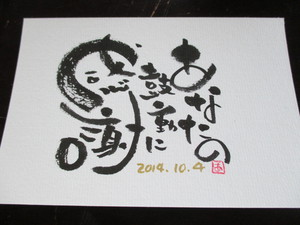 あなたの
鼓動に
感謝
2014.10.4